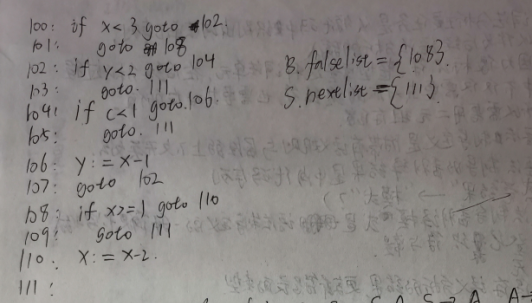 100: if x<3 goto 102
101: goto 108
102: if y<2 goto 104
103: goto 111
104: if c<1 goto 106.
105: goto 111
106 y:=x-1
107: goto 102
108: if x>=1 goto 110
109: goto 111
110: x:=x-2.
111:
B. falselist={108}.
S. nextlist={111}